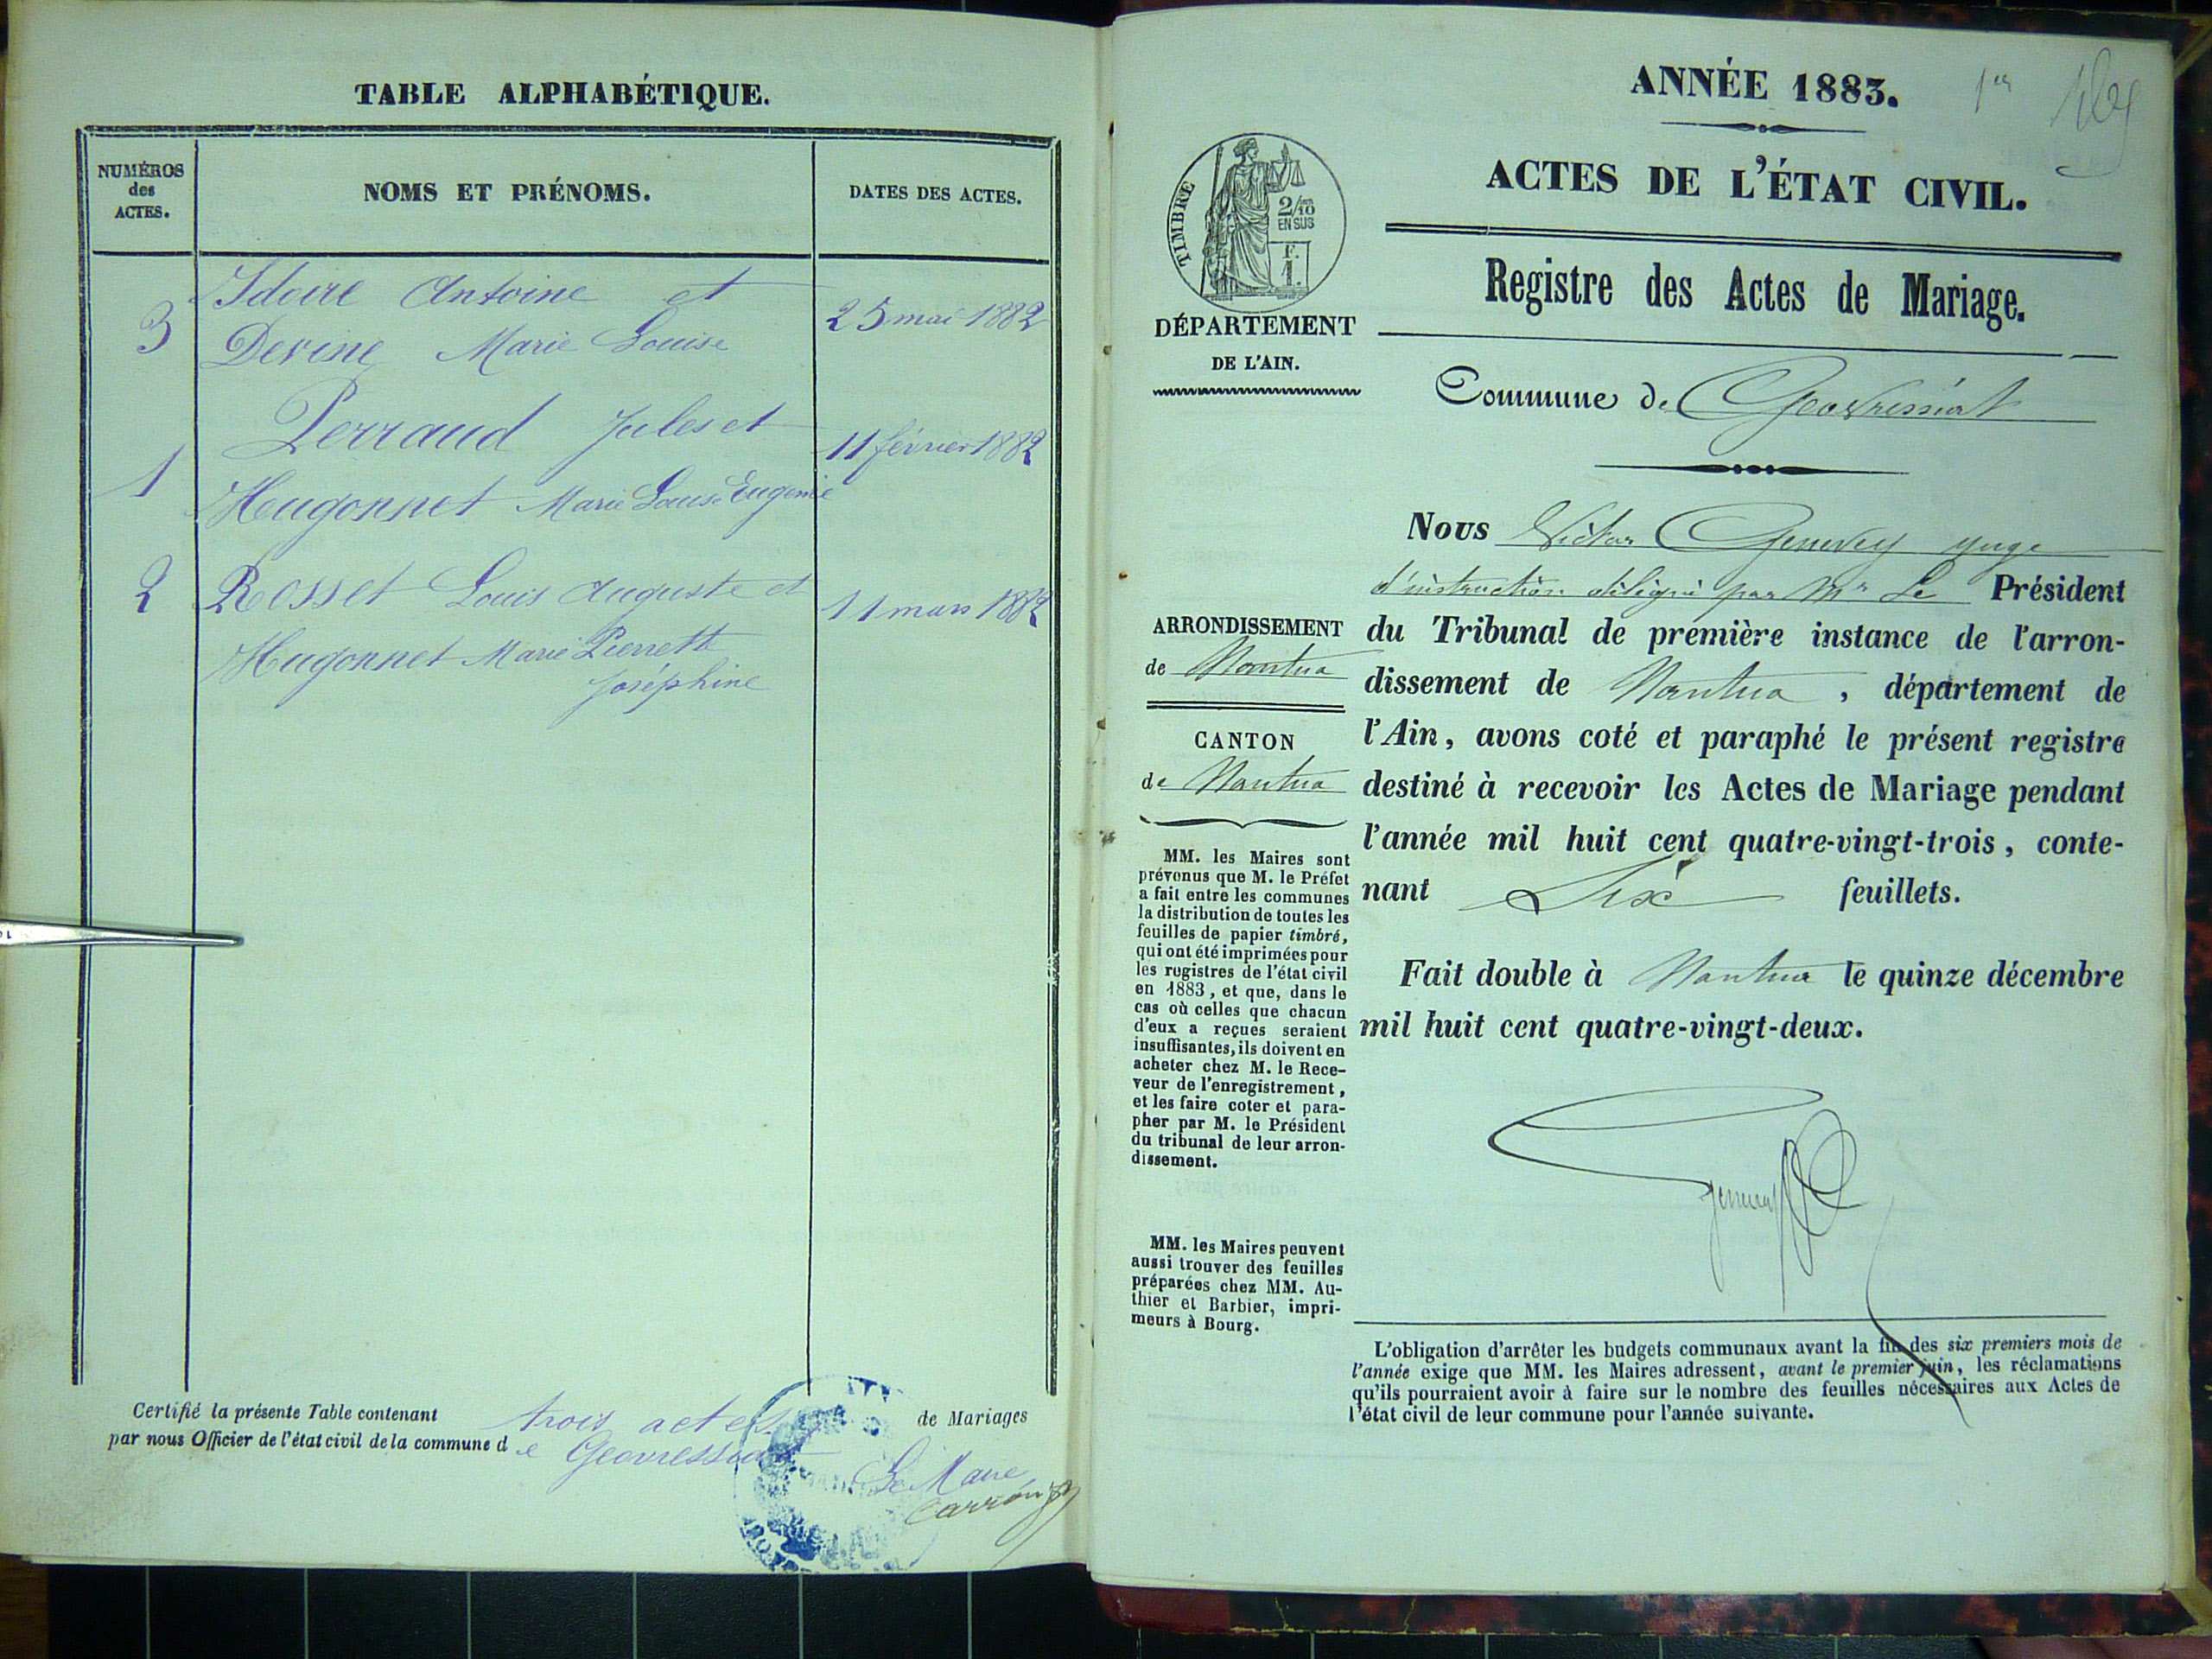 TABLE ALPHABÉTIQUE.
NUMÉROS
des
ACTES.
NOMS ET PRÉNOMS.
DATES DES ACTES.
3
Idoire Antoine et
Derine Marie Louise
25 mai 1882
1
Perraud Jules et
Hugonnet Marie Louise Eugenie
11 février 1882
2
Rosset Louis Auguste et
Hugonnet Marie Pierrette
Joséphine
11 mars 1882
Certifié la présente Table contenant trois actes de Mariages
par nous Officier de l'état civil de la commune de Geovressiat
Le Maire
ANNÉE 1883.
1er
ACTES DE L'ÉTAT CIVIL.
Registre des Actes de Mariage.
TIMBRE
2/10
EN SUS
F.
1.
DÉPARTEMENT
DE L'AIN.
Commune de Geovressiat
Nous Victor Genevey juge
d'instruction délégué par Mr Le Président
du Tribunal de première instance de l'arron-
dissement de Nantua, département de
l'Ain, avons coté et paraphé le présent registre
destiné à recevoir les Actes de Mariage pendant
l'année mil huit cent quatre-vingt-trois, conte-
nant Six feuillets.
Fait double à Nantua le quinze décembre
mil huit cent quatre-vingt-deux.
ARRONDISSEMENT
de Nantua
CANTON
de Nantua
MM. les Maires sont
prévenus que M. le Préfet
a fait entre les communes
la distribution de toutes les
feuilles de papier timbré,
qui ont été imprimées pour
les registres de l'état civil
en 1883, et que, dans le
cas où celles que chacun
d'eux a reçues seraient
insuffisantes, ils doivent en
acheter chez M. le Rece-
veur de l'enregistrement,
et les faire coter et para-
pher par M. le Président
du tribunal de leur arron-
dissement.
MM. les Maires peuvent
aussi trouver des feuilles
préparées chez MM. Au-
thier et Barbier, impri-
meurs à Bourg.
L'obligation d'arrêter les budgets communaux avant la fin des six premiers mois de
l'année exige que MM. les Maires adressent, avant le premier juin, les réclamations
qu'ils pourraient avoir à faire sur le nombre des feuilles nécessaires aux Actes de
l'état civil de leur commune pour l'année suivante.